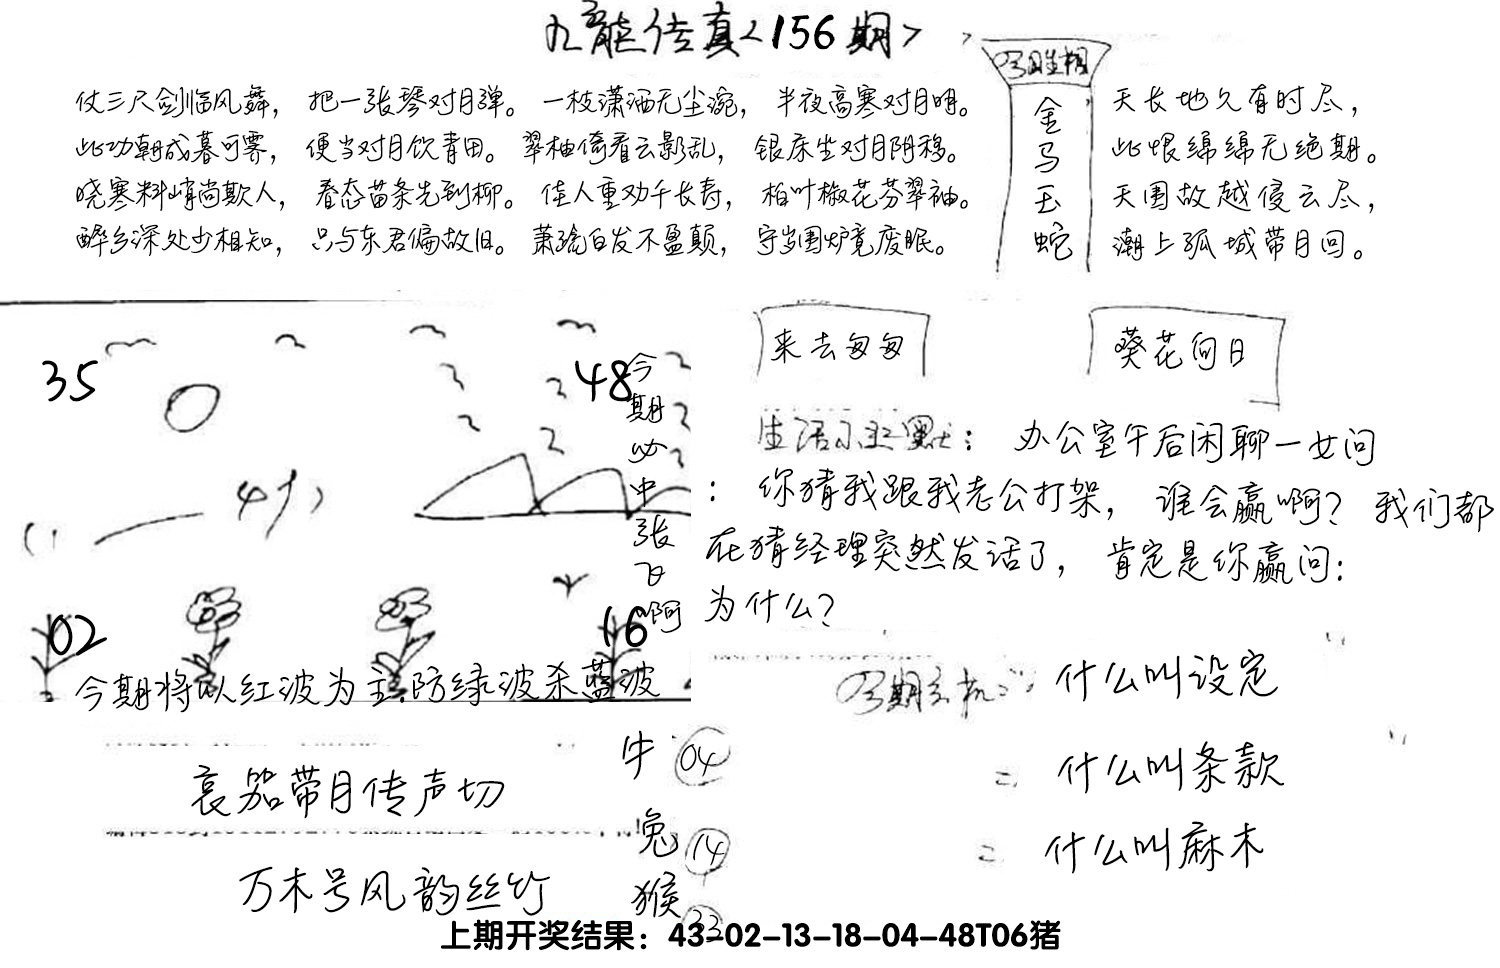 九龍传真<156期>
仗三尺剑临风舞，把一张琴对月弹。一枝潇洒无尘涴，半夜高寒对月明。
此功朝成暮可霁，便当对月饮青田。翠柚倚看云影乱，银床坐对月阴移。
晓寒料峭尚欺人，春态苗条先到柳。佳人重劝千长寿，柏叶椒花芬翠袖。
醉乡深处少相知，只与东君偏故旧。萧疏白发不盈颠，守岁围炉竟废眠。
今期生相
金
马
玉
蛇
天长地久有时尽，
此恨绵绵无绝期。
天围故越侵云尽，
潮上孤城带月回。
35
48
今
期
必
中
张
飞
啊
02
16
今期将以红波为主.防绿波杀蓝波
来去匆匆
葵花向日
生活小幽默：办公室午后闲聊一女问
：你猜我跟我老公打架，谁会赢啊？我们都
在猜经理突然发话了，肯定是你赢问：
为什么？
什么叫设定
= 什么叫条款
= 什么叫麻木
哀笳带月传声切
万木号风韵丝竹
牛 04
兔 14
猴 33
上期开奖结果：43-02-13-18-04-48T06猪